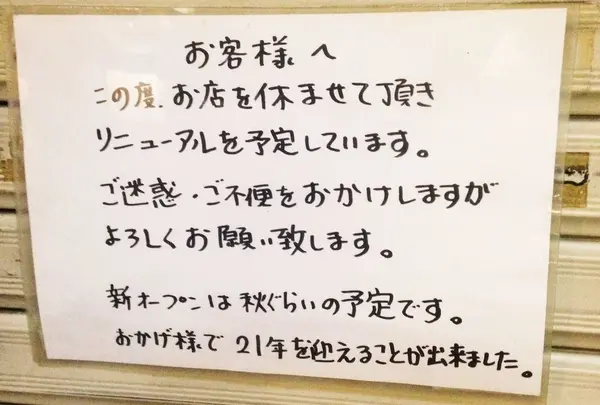 お客様へ
この度、お店を休ませて頂き
リニューアルを予定しています。
ご迷惑・ご不便をおかけしますが
よろしくお願い致します。
新オープンは秋ぐらいの予定です。
おかげ様で21年を迎えることが出来ました。